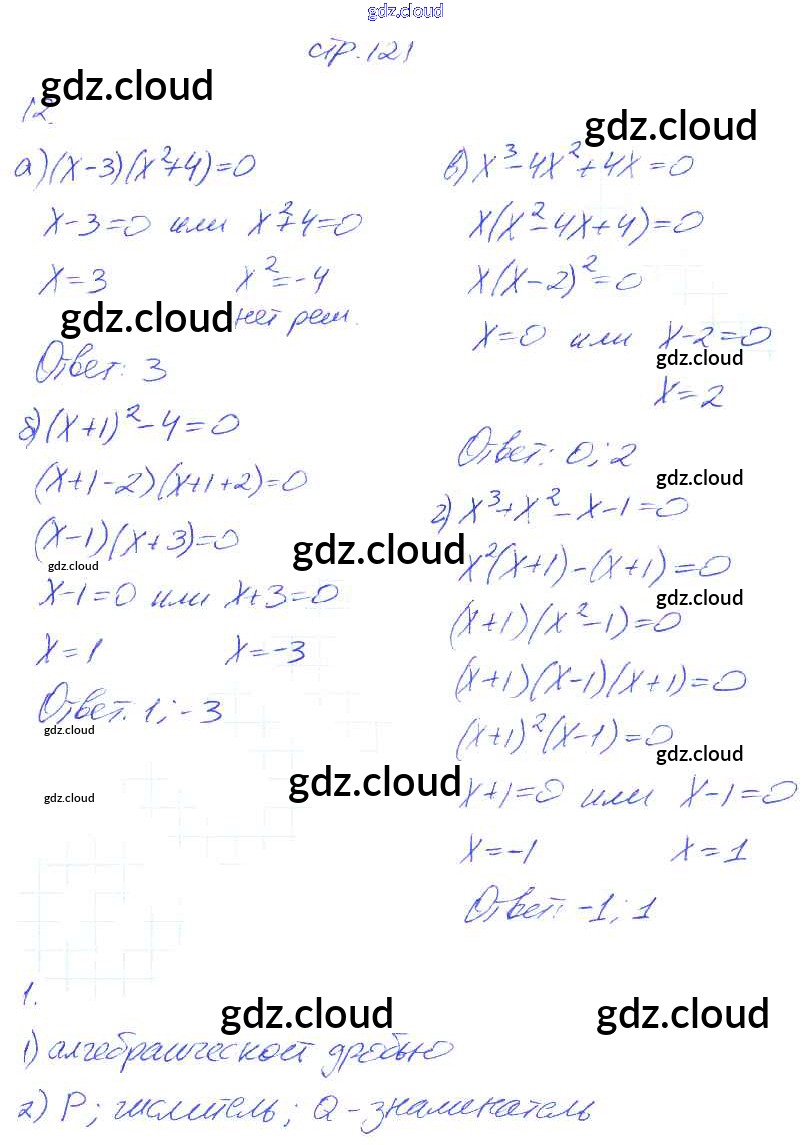 gdz.cloud
стр. 121
gdz.cloud
12.
а) (x-3)(x²+4)=0
x-3=0 или x²+4=0
x=3 x²=-4
gdz.cloud нет реш.
Ответ: 3
б) (x+1)²-4=0
(x+1-2)(x+1+2)=0
(x-1)(x+3)=0
gdz.cloud
gdz.cloud
x-1=0 или x+3=0
x=1 x=-3
Ответ. 1; -3
gdz.cloud
gdz.cloud
gdz.cloud
gdz.cloud
в) x³-4x²+4x=0
x(x²-4x+4)=0
x(x-2)²=0
x=0 или x-2=0
gdz.cloud
x=2
Ответ: 0; 2
gdz.cloud
г) x³+x²-x-1=0
x²(x+1)-(x+1)=0
gdz.cloud
(x+1)(x²-1)=0
(x+1)(x-1)(x+1)=0
(x+1)²(x-1)=0
gdz.cloud
x+1=0 или x-1=0
x=-1 x=1
Ответ: -1; 1
1.
gdz.cloud gdz.cloud
1) алгебраической дробью
2) P; числитель; Q - знаменатель